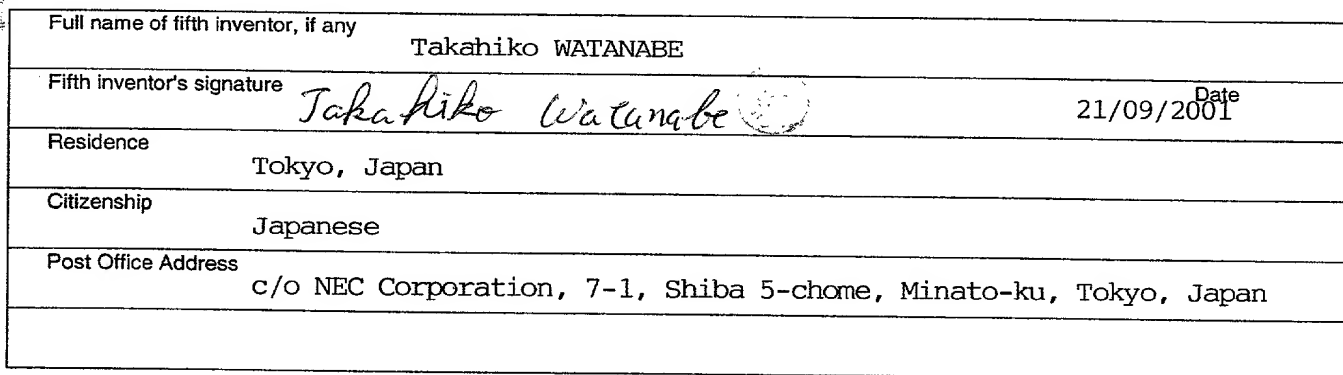 Full name of fifth inventor, if any
Takahiko WATANABE
Fifth inventor's signature Takahiko Watanabe
Date
21/09/2001
Residence
Tokyo, Japan
Citizenship
Japanese
Post Office Address
c/o NEC Corporation, 7-1, Shiba 5-chome, Minato-ku, Tokyo, Japan